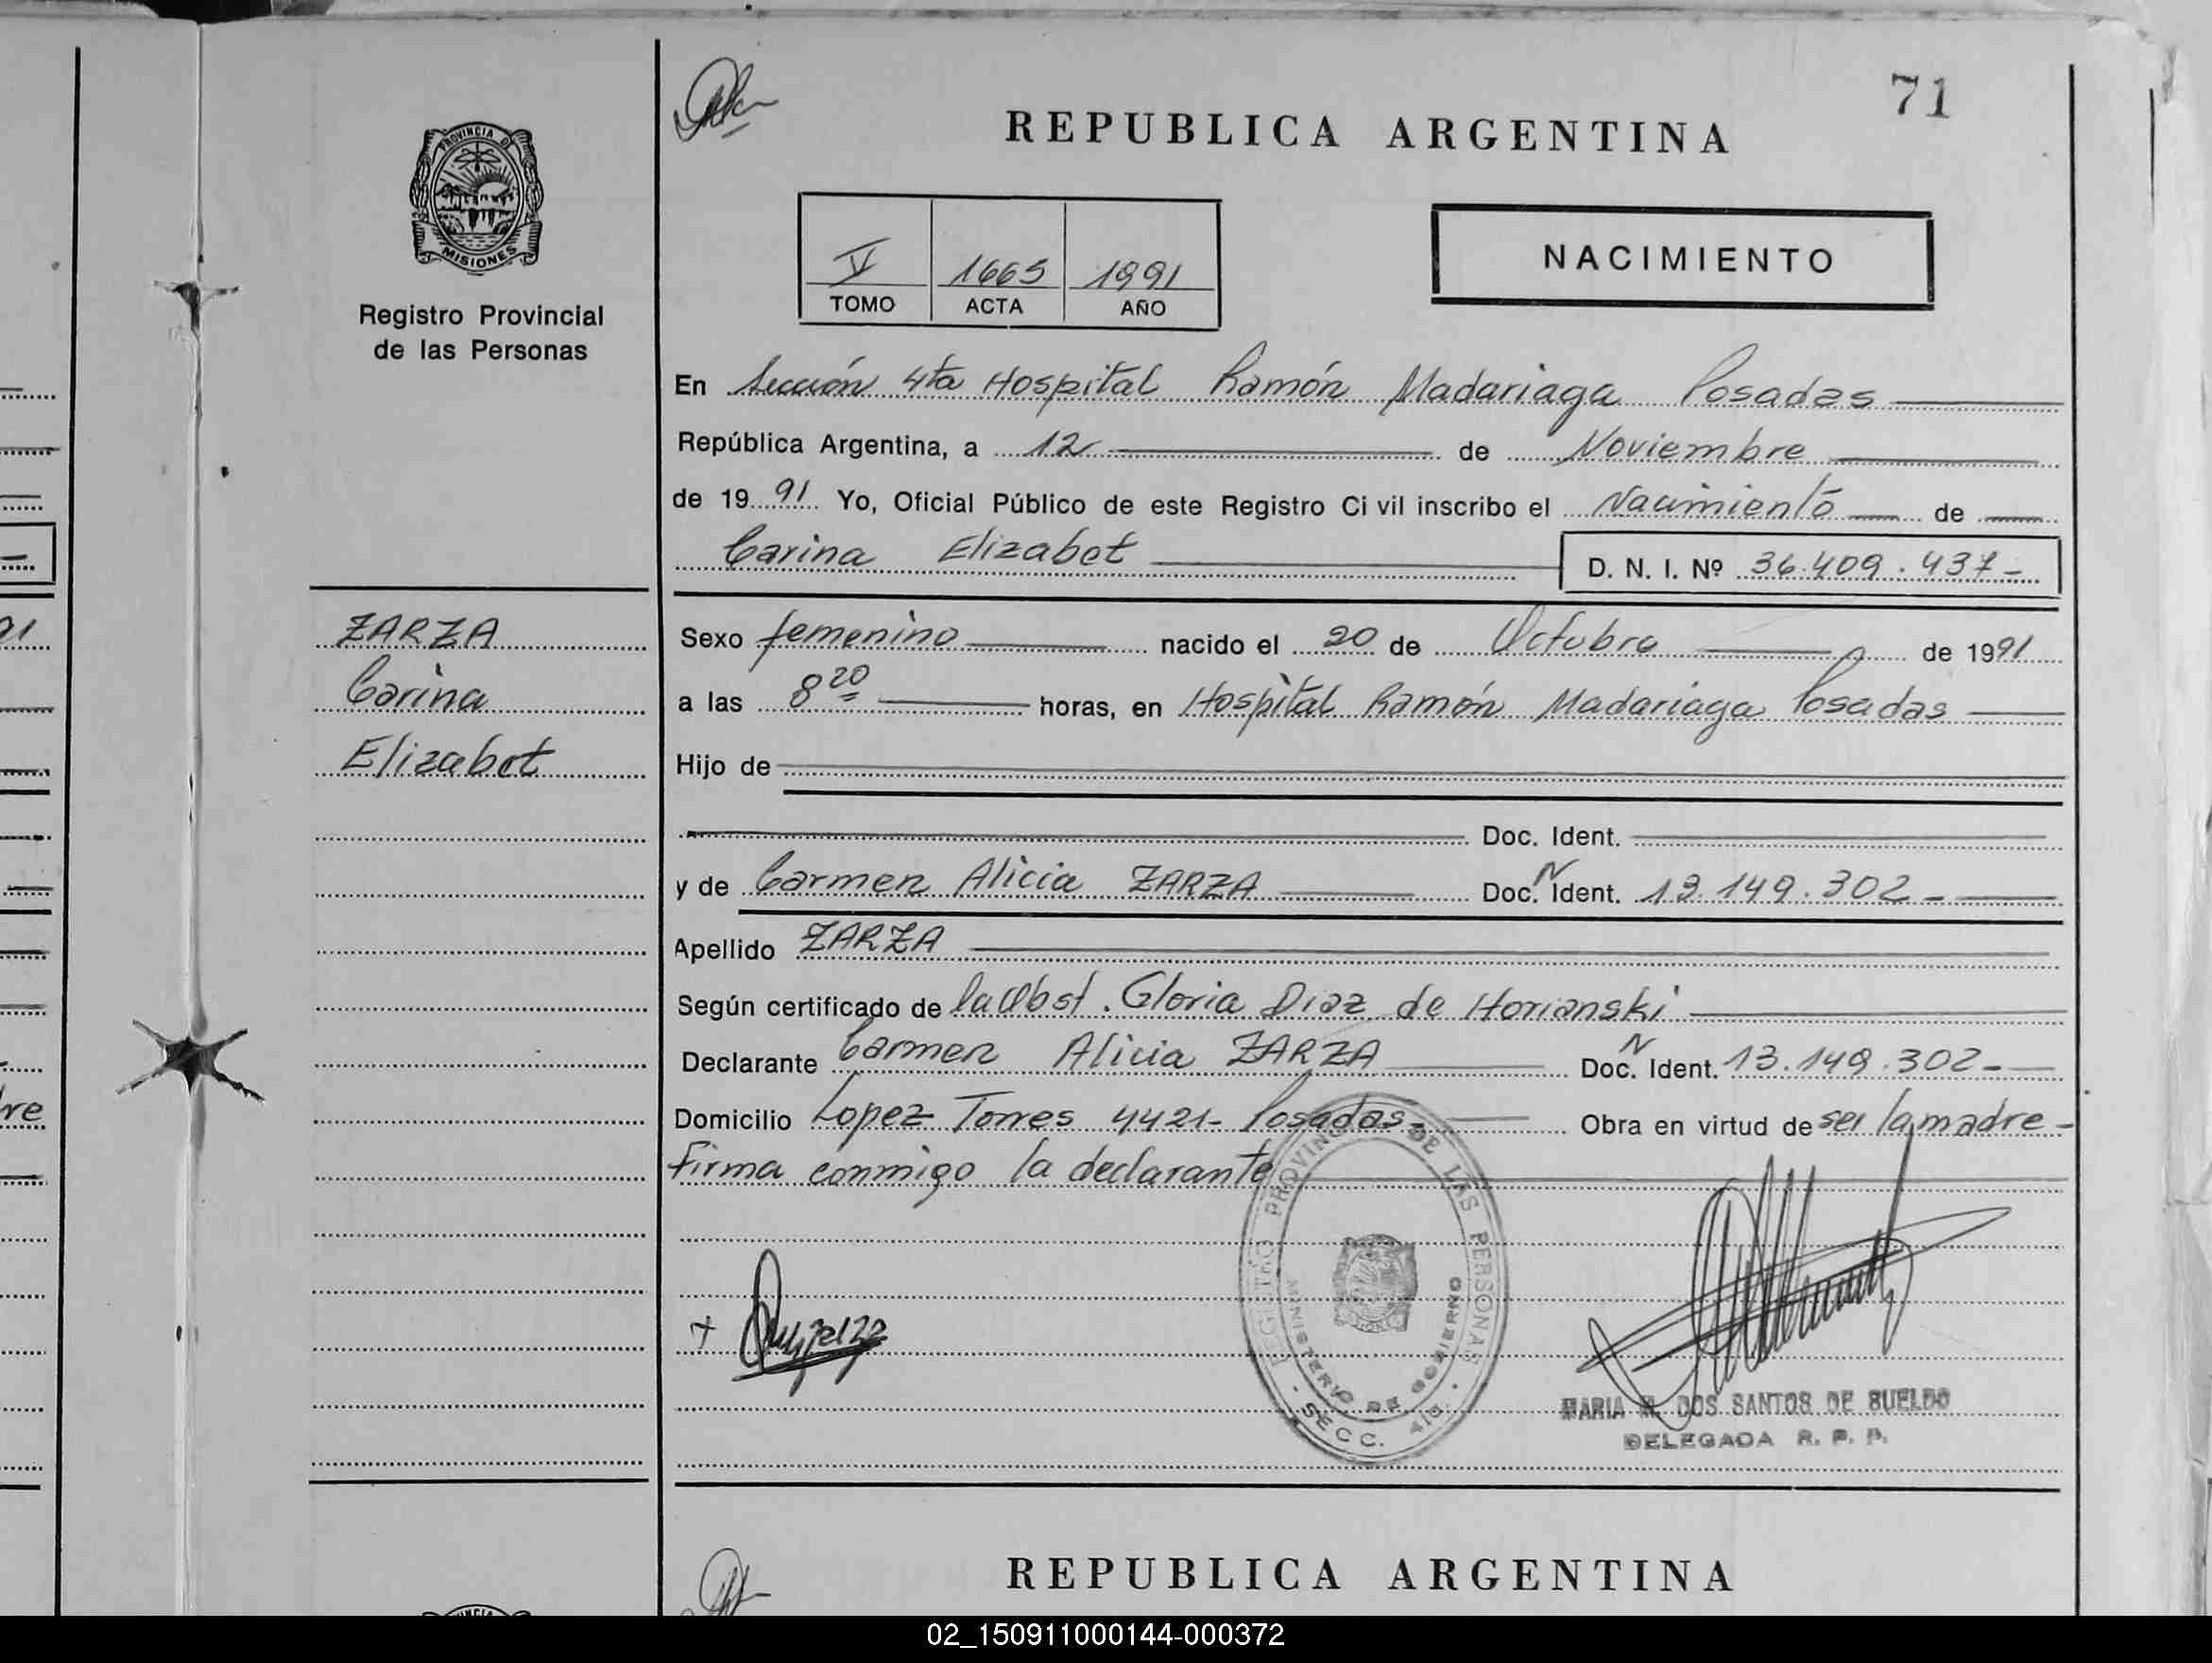 71
REPUBLICA ARGENTINA
PROVINCIA DE
MISIONES
Registro Provincial
de las Personas
V 1665 1991
TOMO ACTA AÑO
NACIMIENTO
En Sección 4ta Hospital Ramón Madariaga Posadas
República Argentina, a 12 de Noviembre
de 1991 Yo, Oficial Público de este Registro Civil inscribo el Nacimiento de
Carina Elizabet D. N. I. Nº 36.409.437-
ZARZA
Carina
Elizabet
Sexo femenino nacido el 20 de Octubre de 1991
a las 8 20 horas, en Hospital Ramón Madariaga Posadas
Hijo de
Doc. Ident.
y de Carmen Alicia ZARZA Doc. N Ident. 13.149.302-
Apellido ZARZA
Según certificado de la Obst. Gloria Diaz de Horianski
Declarante Carmen Alicia ZARZA Doc. N Ident. 13.149.302-
Domicilio Lopez Torres 4421- Posadas- Obra en virtud de ser la madre-
Firma conmigo la declarante
REGISTRO PROVINCIAL DE LAS PERSONAS
MINISTERIO DE GOBIERNO
SECC. 4ta.
MARIA M. DOS SANTOS DE BUELDO
DELEGADA R. P. P.
REPUBLICA ARGENTINA
02_150911000144-000372